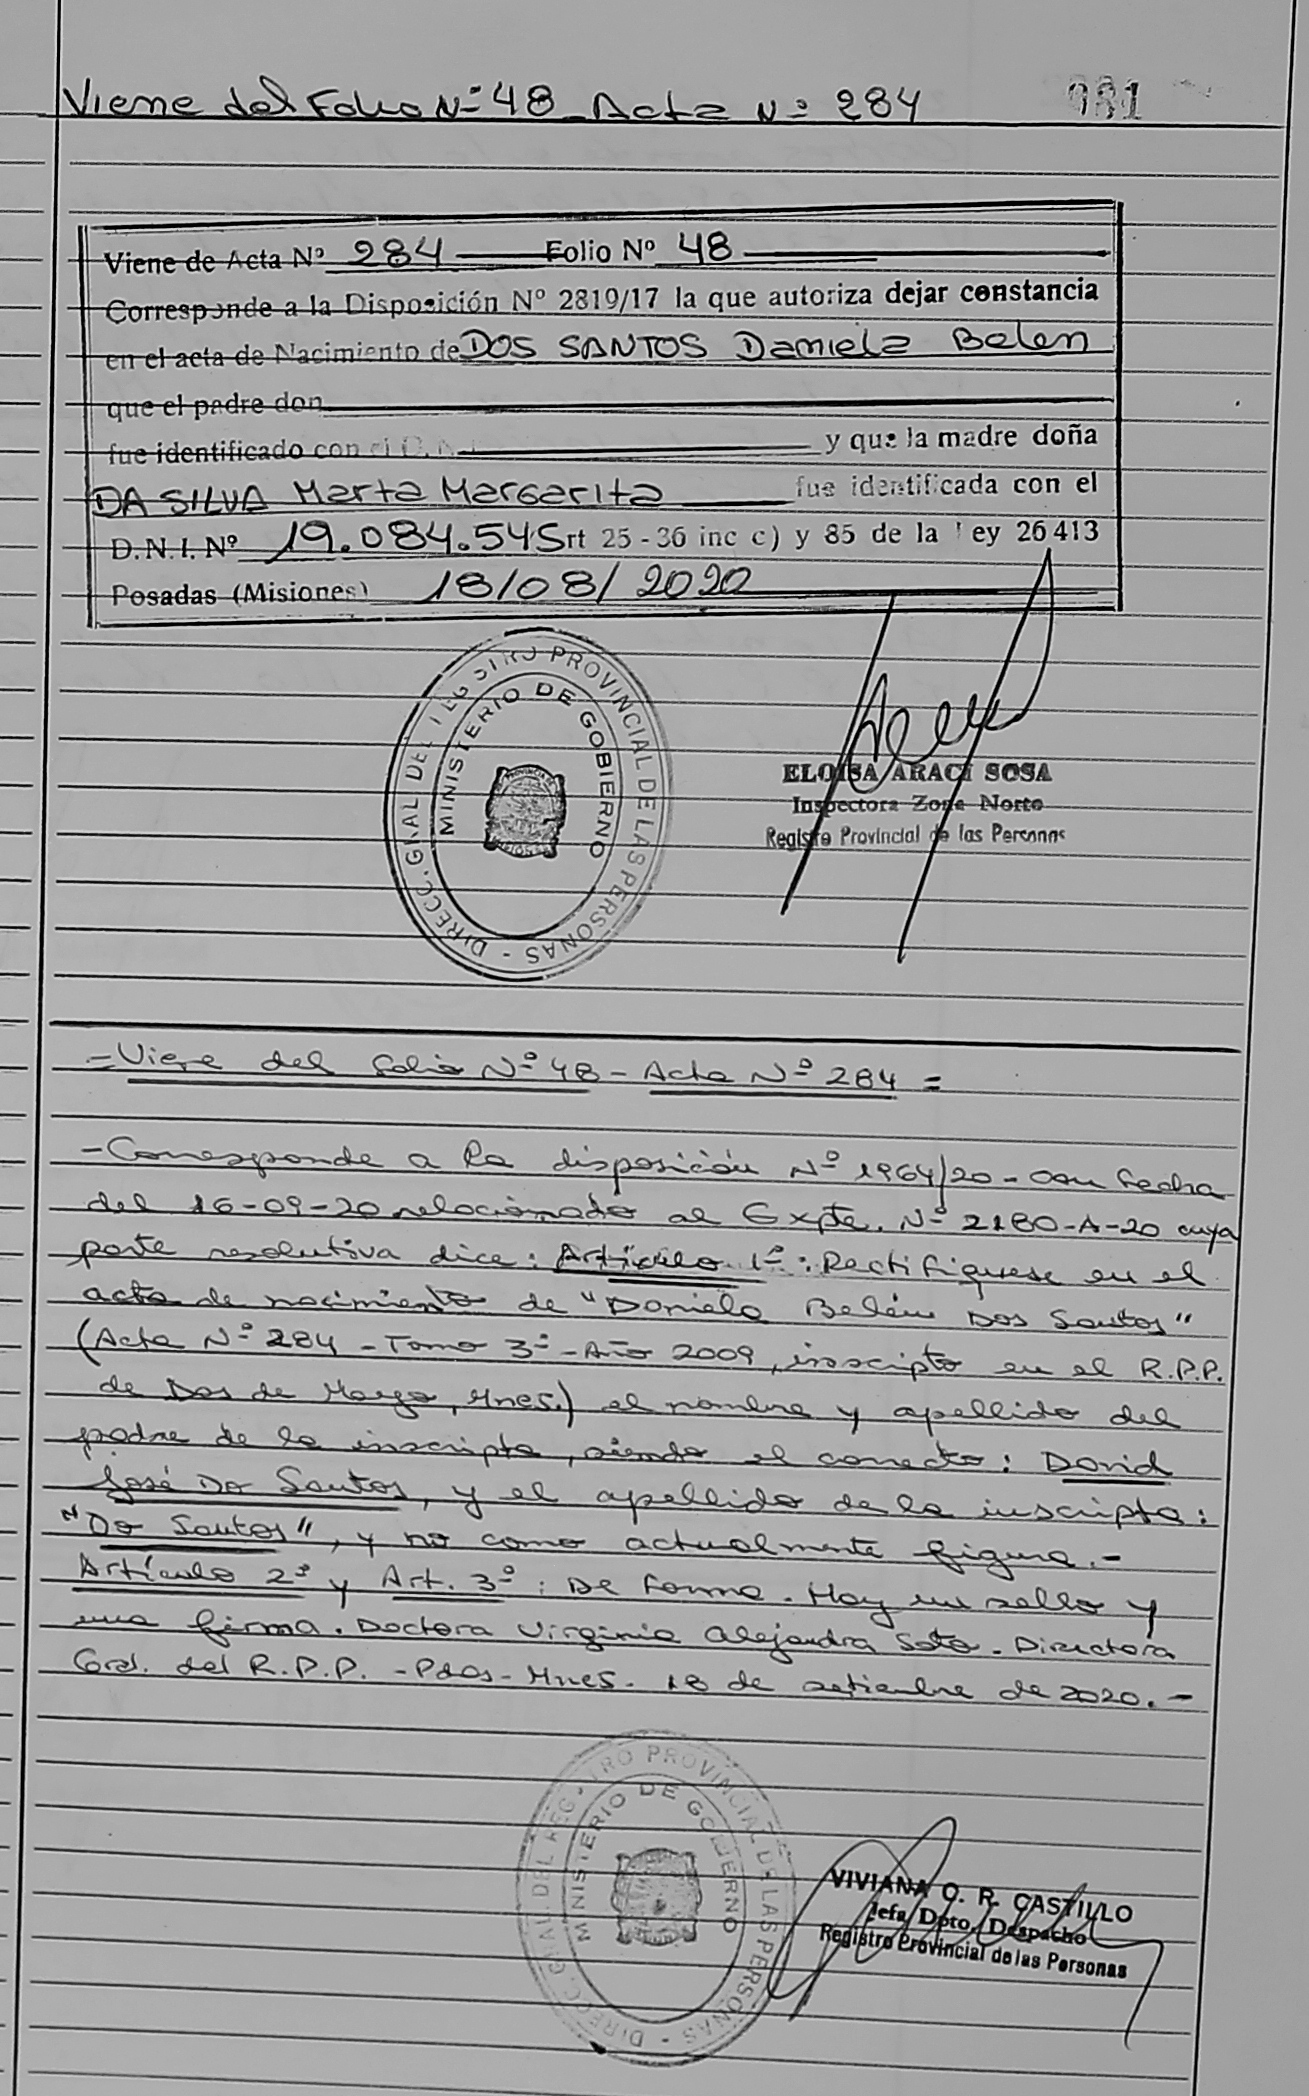 Viene del Folio Nº 48 - Acta Nº 284
081
Viene de Acta Nº 284 Folio Nº 48
Corresponde a la Disposición Nº 2819/17 la que autoriza dejar constancia
en el acta de Nacimiento de DOS SANTOS Daniela Belen
que el padre don
fue identificado con el D.N.I. y que la madre doña
DA SILVA Marta Margarita fue identificada con el
D.N.I. Nº 19.084.545 rt 25 - 36 inc c) y 85 de la ley 26413
Posadas (Misiones) 18/08/2020
DIRECC. GRAL DEL REGISTRO PROVINCIAL DE LAS PERSONAS -
MINISTERIO DE GOBIERNO
ELOISA ARACI SOSA
Inspectora Zona Norte
Registro Provincial de las Personas
= Viene del folio Nº 48 - Acta Nº 284 =
- Corresponde a la disposición Nº 1964/20 - con fecha
del 16-09-20 relacionado al Expte. Nº 2180-A-20 cuya
parte resolutiva dice: Artículo 1º: Rectifiquese en el
acta de nacimiento de "Daniela Belén Dos Santos"
(Acta Nº 284 - Tomo 3º - Año 2009, inscripto en el R.P.P.
de Dos de Mayo, Mnes.) el nombre y apellido del
padre de la inscripta, siendo el correcto: David
José Do Santos, y el apellido de la inscripta:
"Do Santos", y no como actualmente figura.-
Artículo 2º y Art. 3º: De forma. Hay un sello y
una firma. Doctora Virginia Alejandra Soto. Directora
Gral. del R.P.P. - Pdas - Mnes. 18 de setiembre de 2020.-
DIRECC. GRAL. DEL REGISTRO PROVINCIAL DE LAS PERSONAS -
MINISTERIO DE GOBIERNO
VIVIANA C. R. CASTILLO
Jefa Dpto. Despacho
Registro Provincial de las Personas